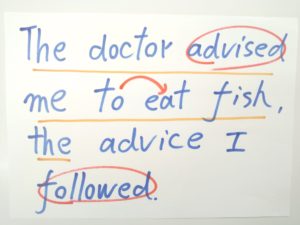 The doctor advised
me to eat fish,
the advice I
followed.